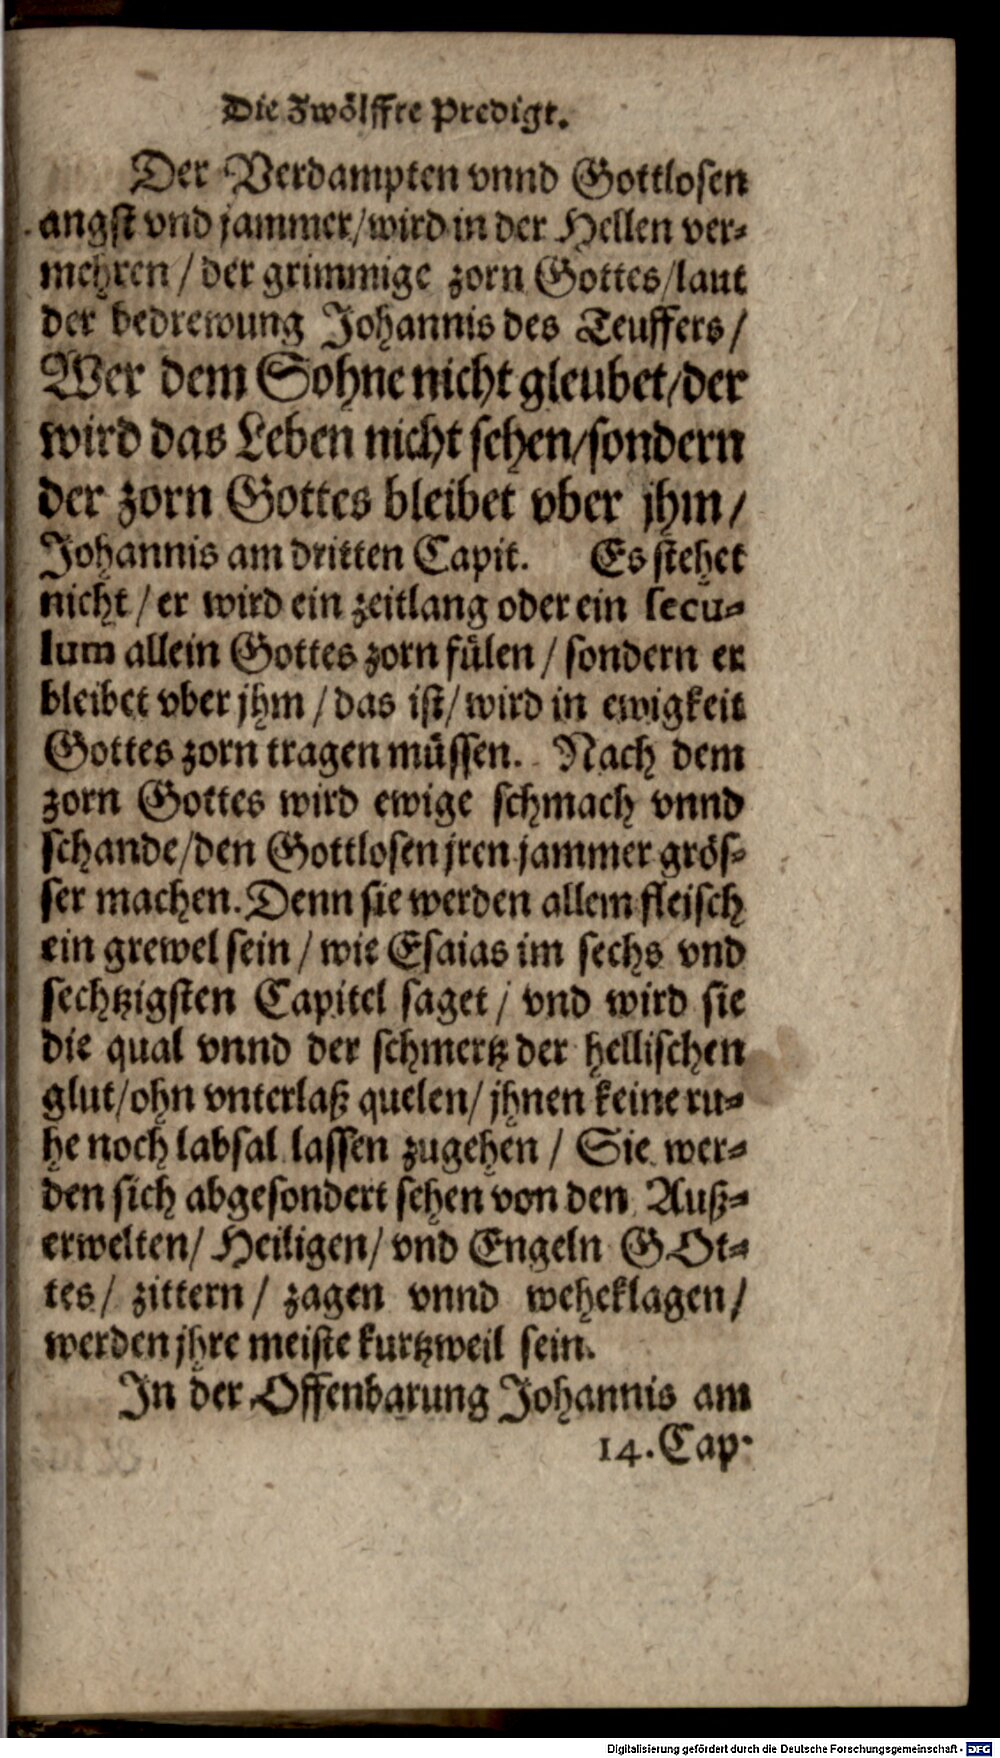 Die Zwölffte Predigt.
Der Verdampten vnnd Gottlosen
angst vnd jammer/wird in der Hellen ver-
mehren / der grimmige zorn Gottes/laut
der bedrewung Johannis des Teuffers /
Wer dem Sohne nicht gleubet/der
wird das Leben nicht sehen/sondern
der zorn Gottes bleibet vber jhm /
Johannis am dritten Capit. Es stehet
nicht / er wird ein zeitlang oder ein secu-
lum allein Gottes zorn fülen / sondern er
bleibet vber jhm / das ist/ wird in ewigkeit
Gottes zorn tragen müssen. Nach dem
zorn Gottes wird ewige schmach vnnd
schande/den Gottlosen jren jammer grös-
ser machen. Denn sie werden allem fleisch
ein grewel sein / wie Esaias im sechs vnd
sechtzigsten Capitel saget / vnd wird sie
die qual vnnd der schmertz der hellischen
glut/ohn vnterlaß quelen/ jhnen keine ru-
he noch labsal lassen zugehen / Sie wer-
den sich abgesondert sehen von den Auß-
erwelten/ Heiligen/ vnd Engeln GOt-
tes/ zittern / zagen vnnd weheklagen/
werden jhre meiste kurtzweil sein.
In der Offenbarung Johannis am
14. Cap.
Digitalisierung gefördert durch die Deutsche Forschungsgemeinschaft - DFG